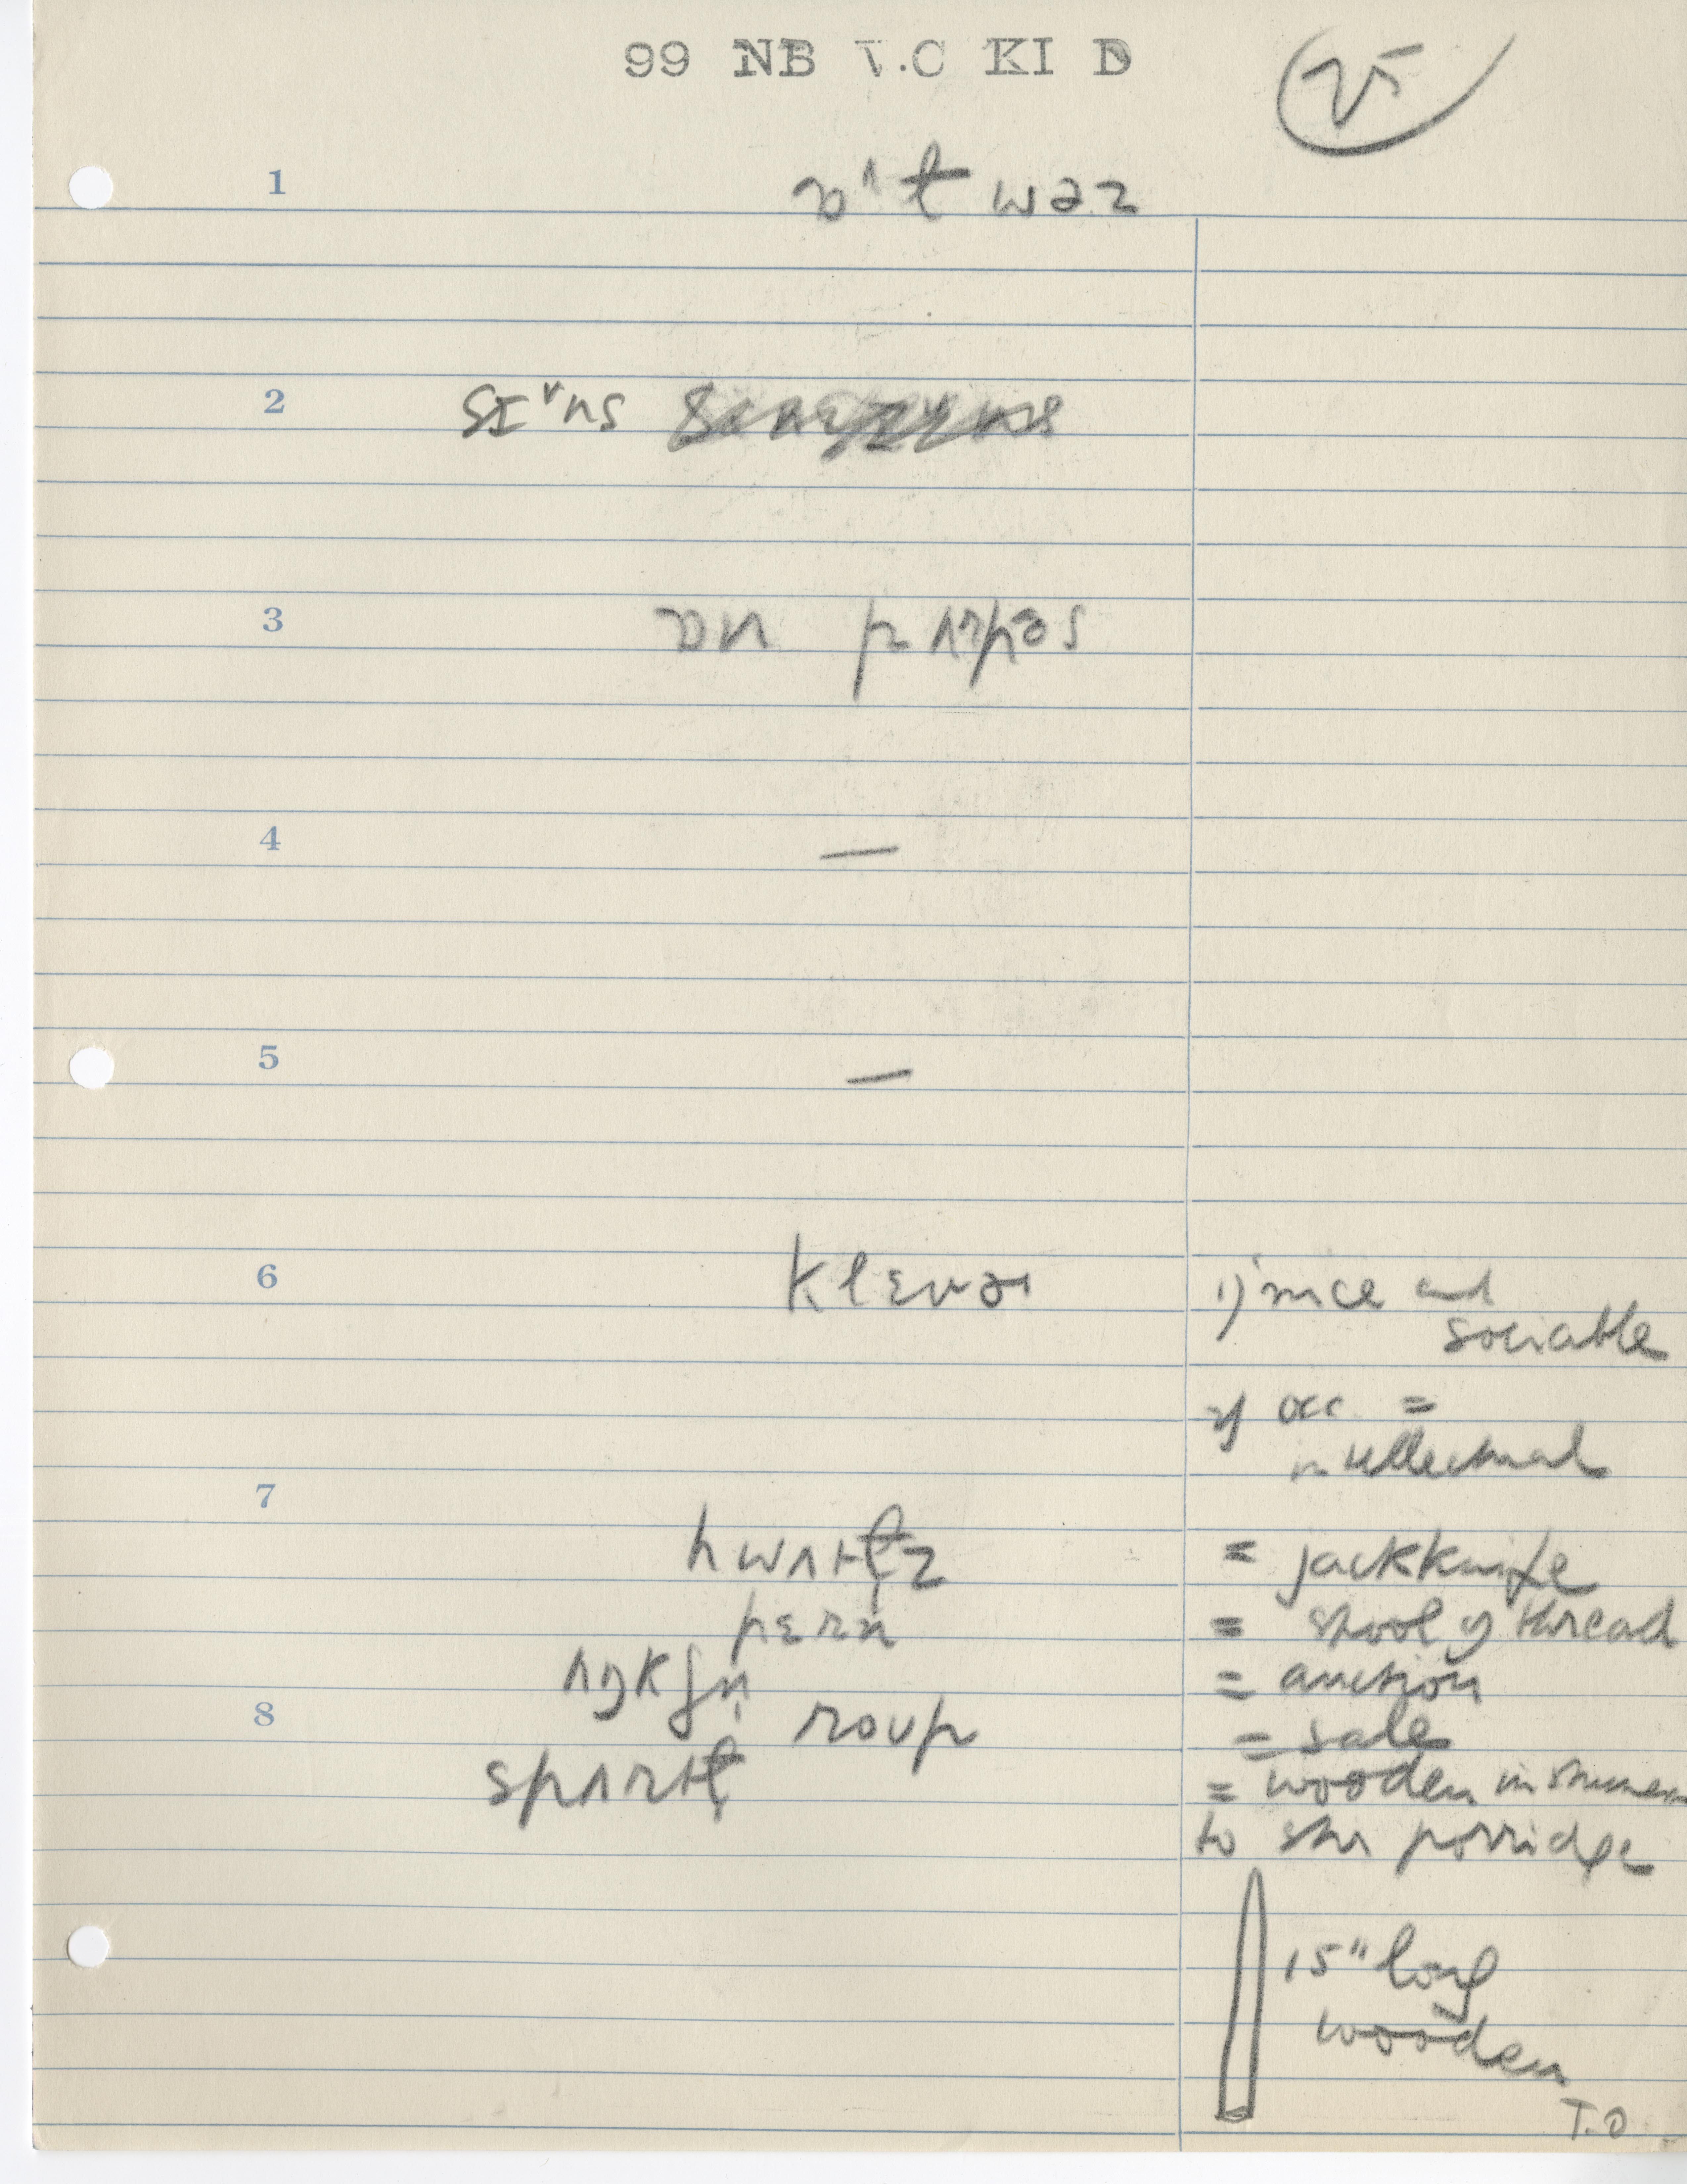 99 NB V.C KI D
25
1
ɒ^t wəz
2
sɪˇns
3
ɒn pʌrpəs
4
—
5
—
6 klɛvɚ 1) nice and
sociable
2) occ =
intellectual
7
hwʌrtlz = jackknife
pɛrn̩ = spool of thread
ʌŋkʃn̩ = auction
8 roup = sale
spʌrtl̩ = wooden instrumen
to stir porridge
15" long
wooden
T.O